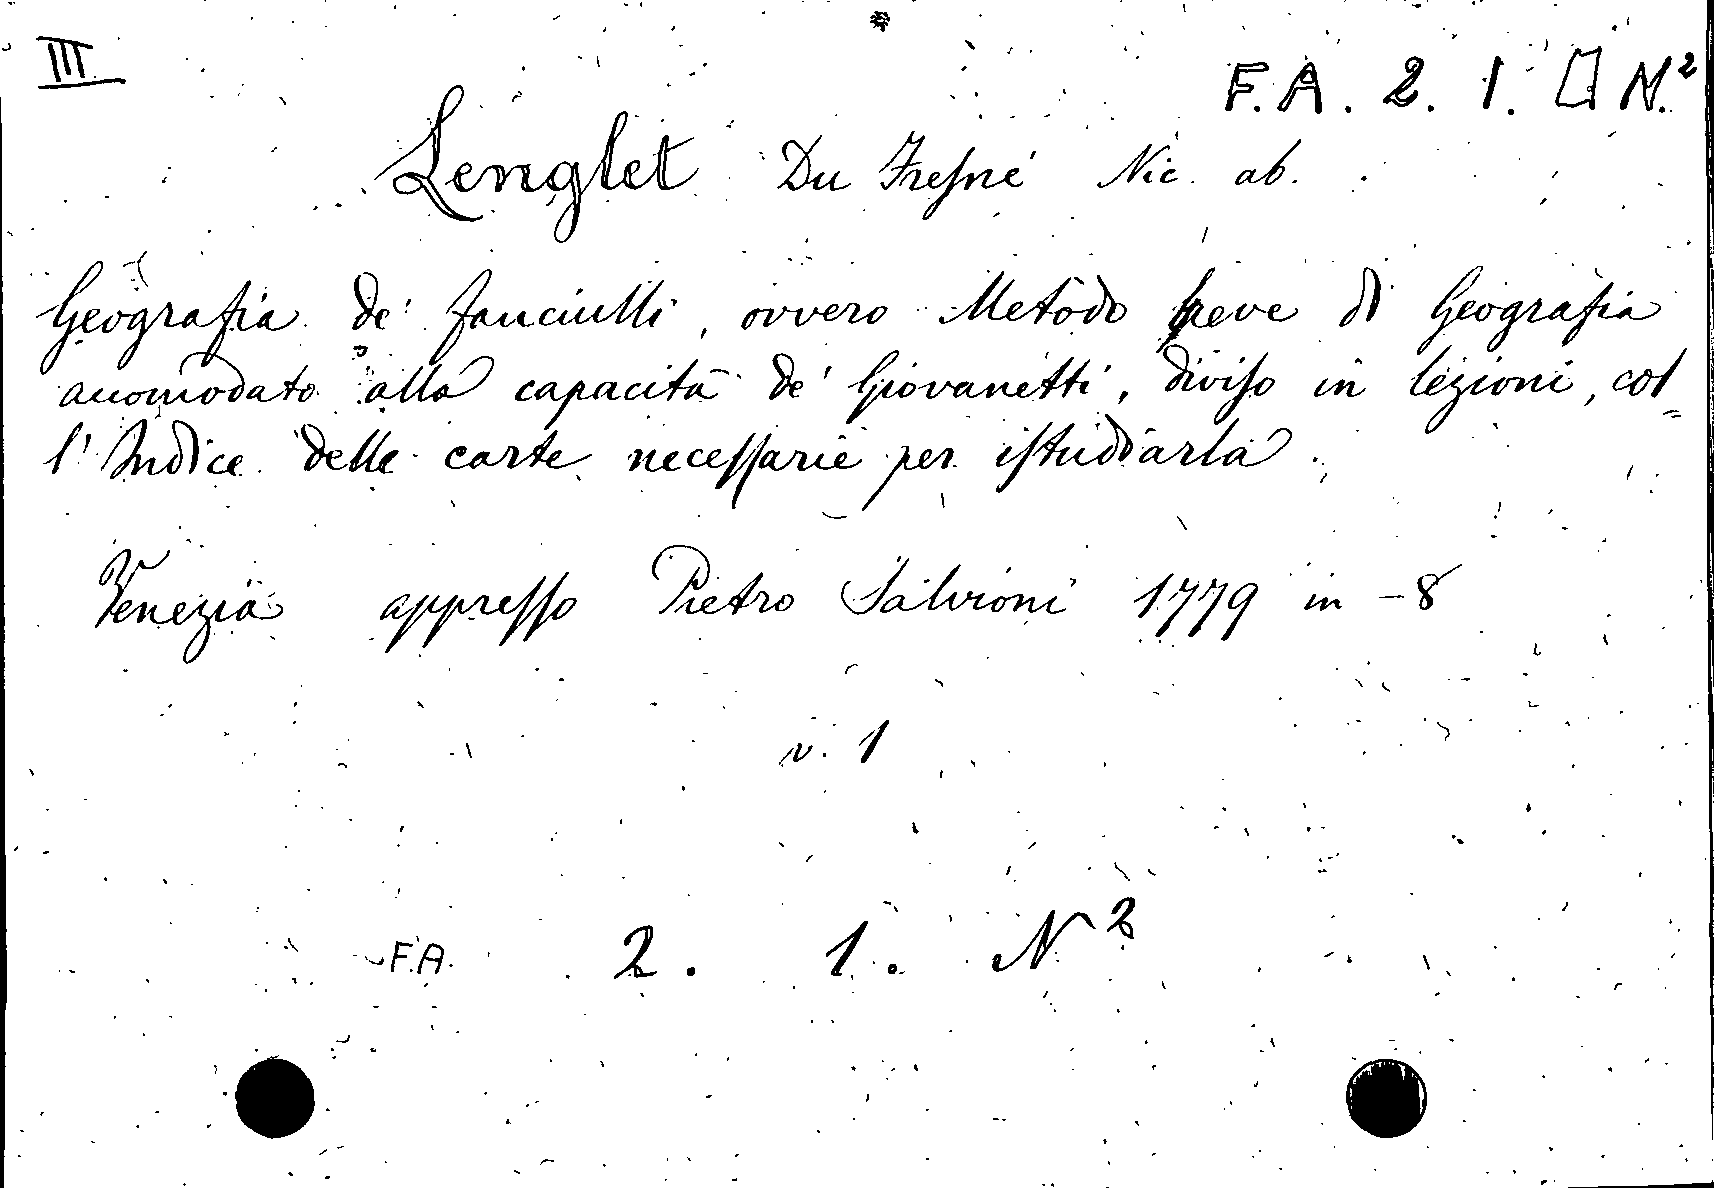 III
F.A. 2. 1. N.2
Lenglet Du Fresné Nic. ab.
Geografia de' fanciulli, ovvero Metodo breve di Geografia
accomodato alla capacità de' Giovanetti, diviso in lezioni, col=
l'Indice delle carte necessarie per istudiarla.
Venezia appresso Pietro Salvioni 1779 in-8
v. 1
F.A. 2. 1. N 2